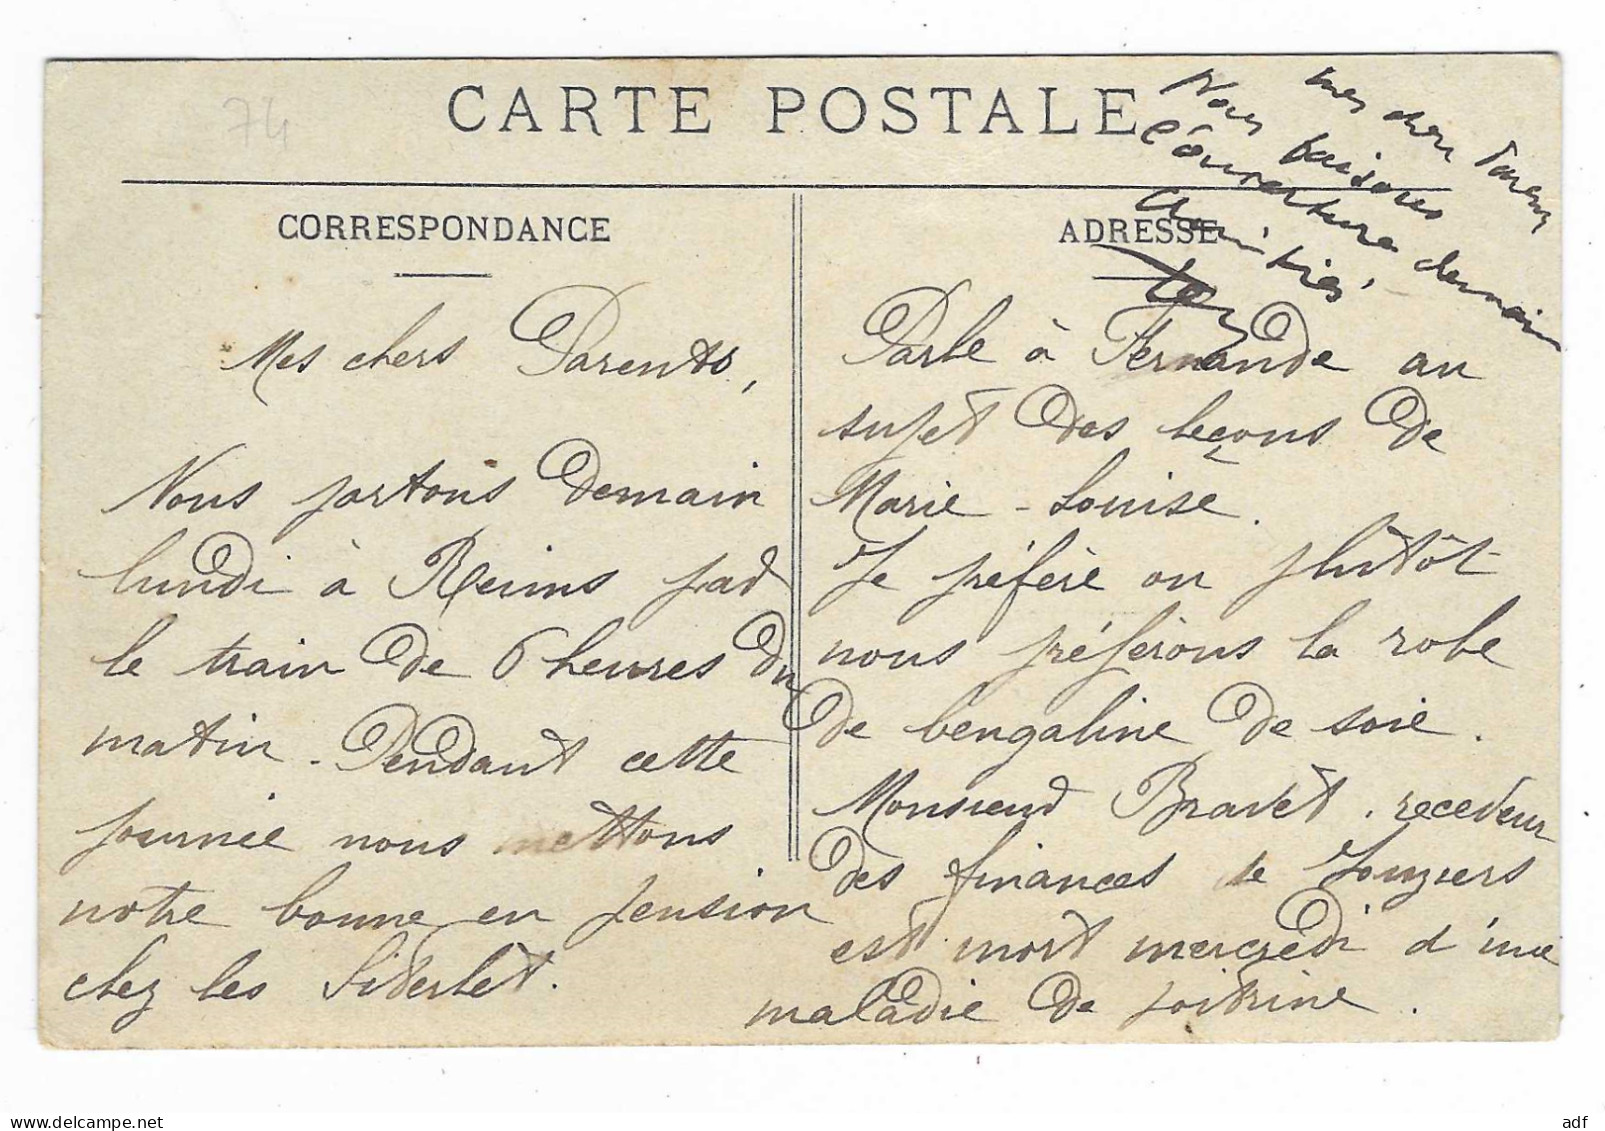 74
CARTE POSTALE
mes chers Parents
Nous faisons
l'ouverture demain
Amitiés
CORRESPONDANCE
ADRESSE
Mes chers Parents,
Nous partons demain
lundi à Reims par
le train de 6 heures du
matin. Pendant cette
journée nous mettons
notre bonne en pension
chez les Siderlet.
Parle à Fernande au
sujet des leçons de
Marie-Louise.
Je préfère ou plutôt
nous préférons la robe
de bengaline de soie.
Monsieur Bravet, receveur
des finances de Vouziers
est mort mercredi d'une
maladie de poitrine.
delcampe.net
adf